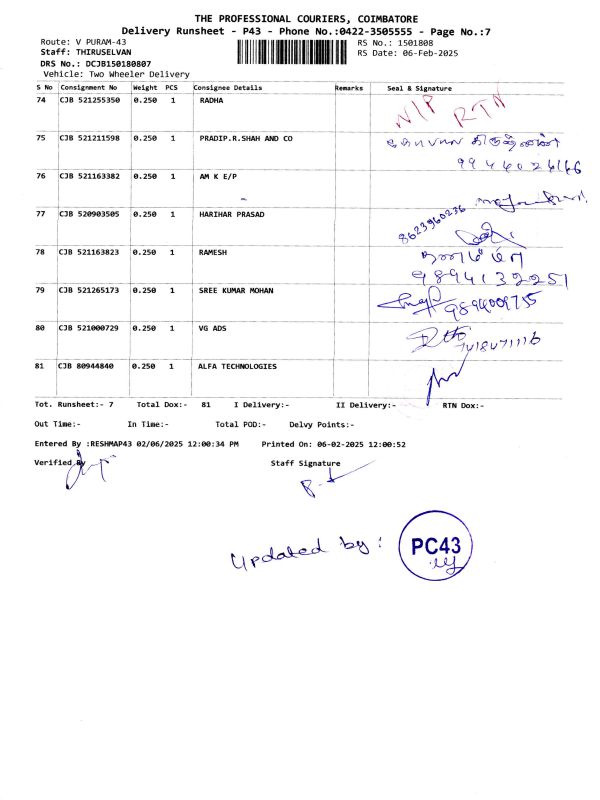 THE PROFESSIONAL COURIERS, COIMBATORE
Delivery Runsheet - P43 - Phone No.:0422-3505555 - Page No.:7
Route: V PURAM-43 RS No.: 1501808
Staff: THIRUSELVAN RS Date: 06-Feb-2025
DRS No.: DCJB150180807
Vehicle: Two Wheeler Delivery
S No Consignment No Weight PCS Consignee Details Remarks Seal & Signature
74 CJB 521255350 0.250 1 RADHA N/P RTN
75 CJB 521211598 0.250 1 PRADIP.R.SHAH AND CO
9944024166
76 CJB 521163382 0.250 1 AM K E/P
77 CJB 520903505 0.250 1 HARIHAR PRASAD 8623960236
78 CJB 521163823 0.250 1 RAMESH
9894132251
79 CJB 521265173 0.250 1 SREE KUMAR MOHAN
80 CJB 521000729 0.250 1 VG ADS
81 CJB 80944840 0.250 1 ALFA TECHNOLOGIES
Tot. Runsheet:- 7 Total Dox:- 81 I Delivery:- II Delivery:- RTN Dox:-
Out Time:- In Time:- Total POD:- Delvy Points:-
Entered By :RESHMAP43 02/06/2025 12:00:34 PM Printed On: 06-02-2025 12:00:52
Verified By Staff Signature
Updated by : PC43